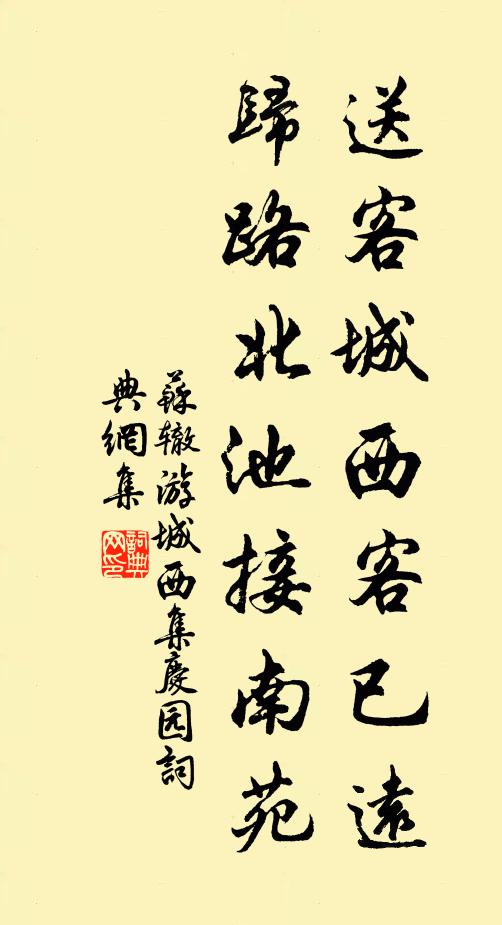 送客城西客已遠
歸路北池接南苑
蘇辙游城西集慶园詞
典網集
詞典
网印